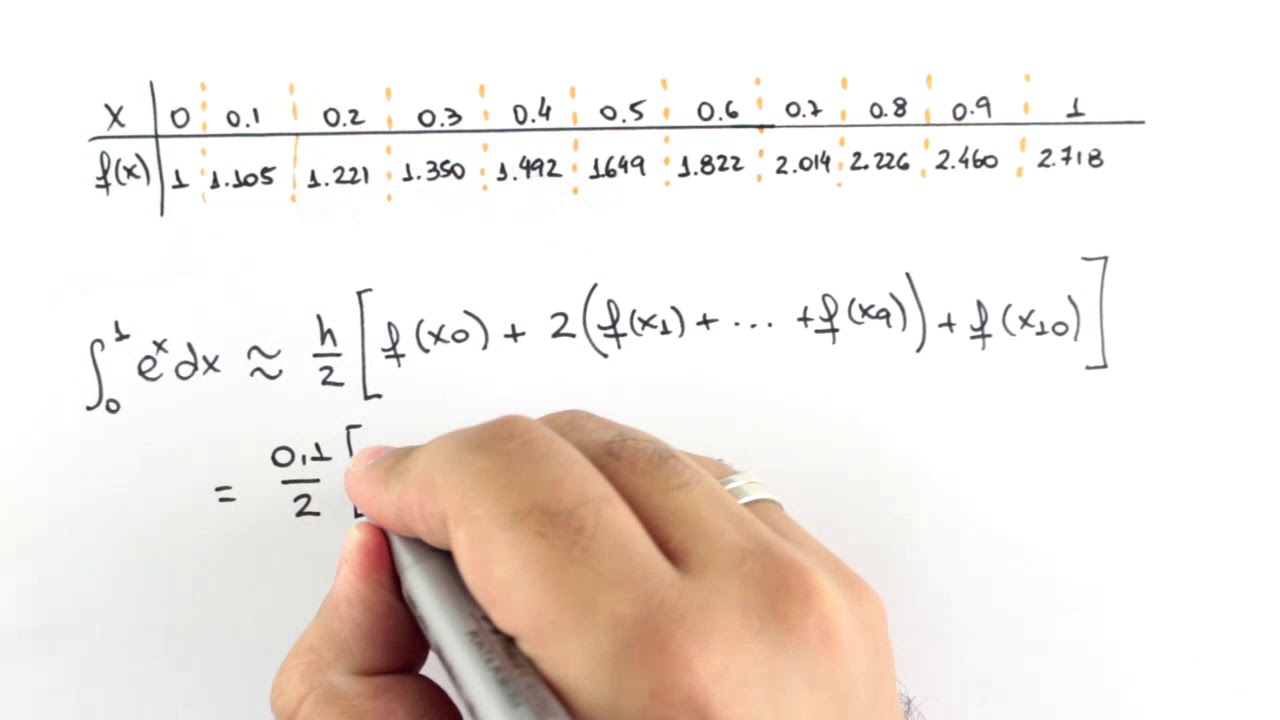 x 0 0.1 0.2 0.3 0.4 0.5 0.6 0.7 0.8 0.9 1
f(x) 1 1.105 1.221 1.350 1.492 1649 1.822 2.014 2.226 2.460 2.718
∫₀¹ eˣ dx ≈ h/2 [f(x0) + 2(f(x1) + ... + f(x9)) + f(x10)]
= 0,1/2 [